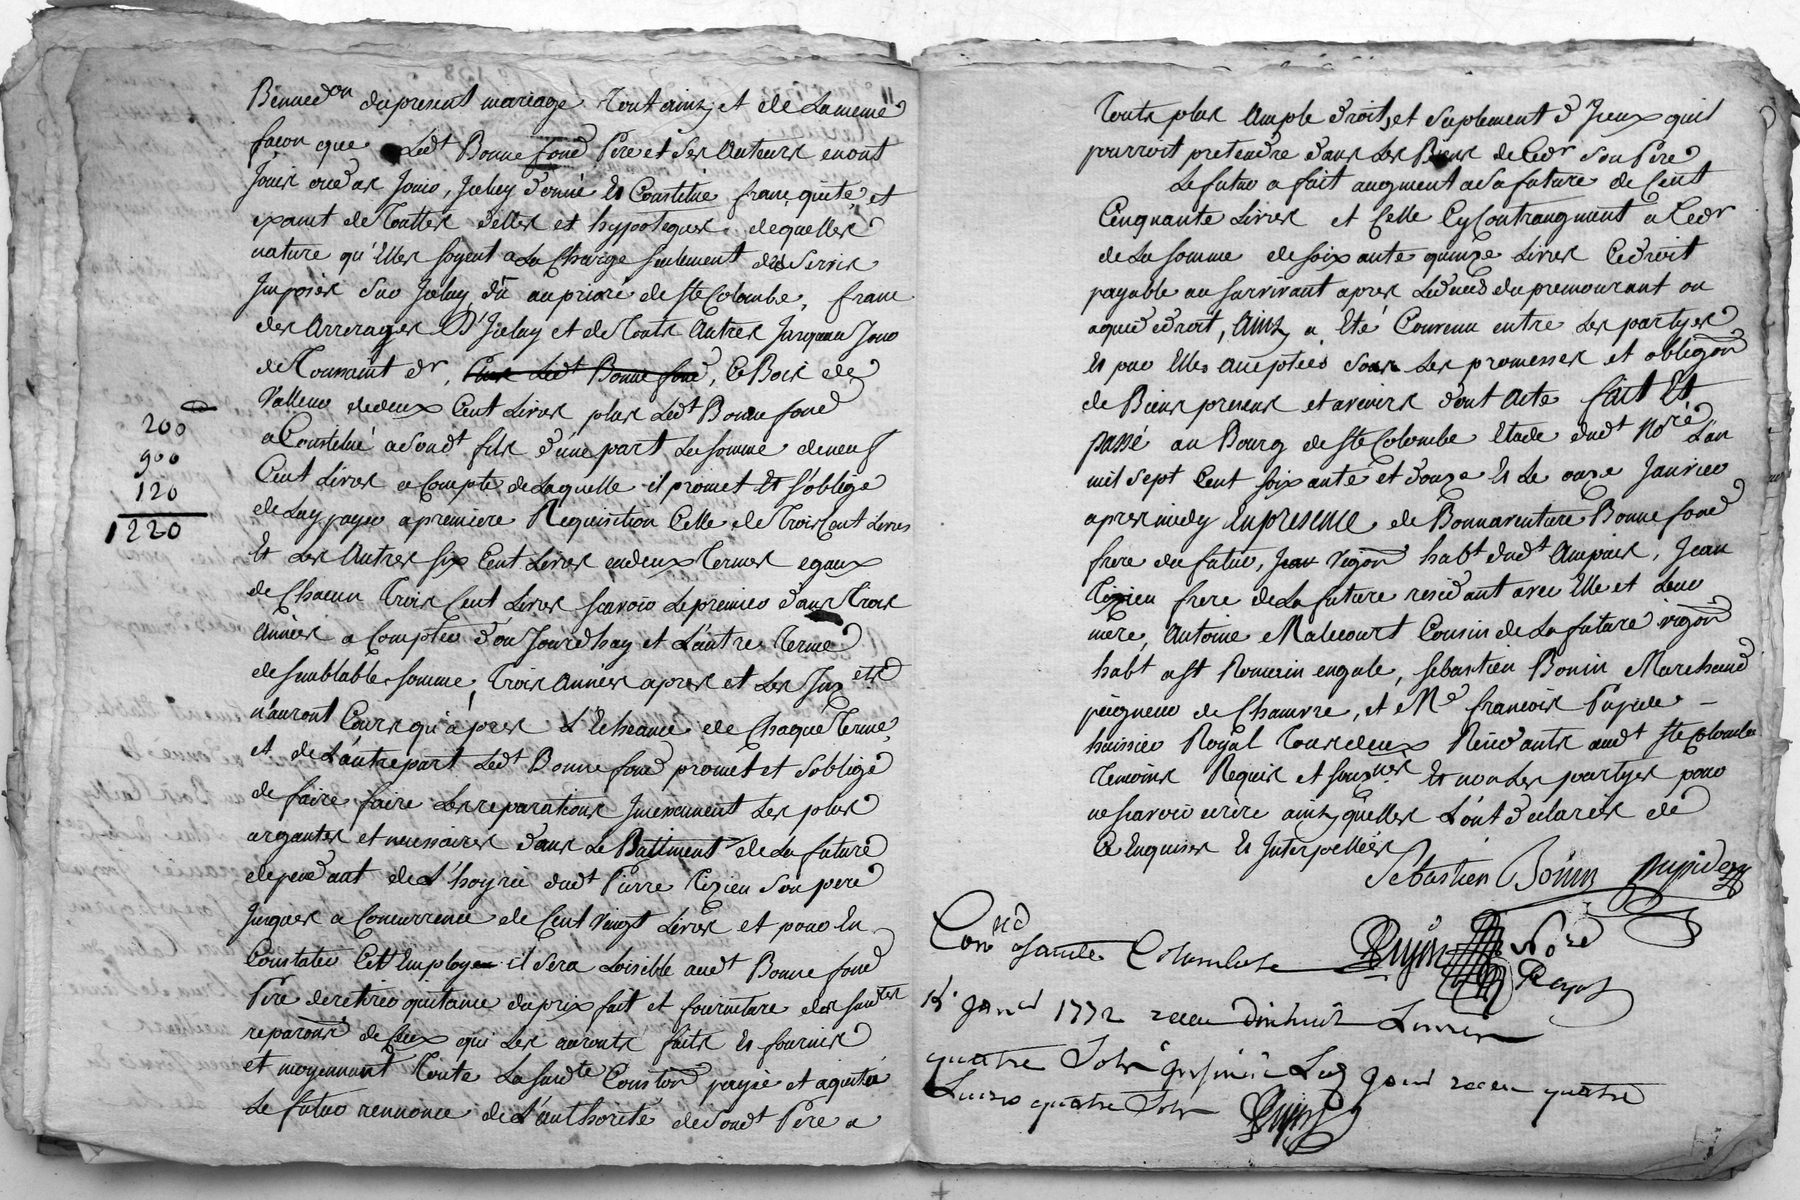 Bennedon du present mariage tout ainz et de la meme
facon que Ledt Bonnefond Pere et ses Auteurs en ont
Jouis oud as Jouis, Icelluy donné Et Constitué franc quite et
examt de Touttes dettes et hypoteques dequelles
nature qu'Elles soyent a La Charge seulement des servis
Imposés suo Iceluy dû au prioré de Ste Colombe, franc
des Arrerages D'Iceluy et de Touts Autres Jusqu'au Jouo
de Toussaint dr, Ledt Bonnefond, Ce Bois de
Valleuo dedeux Cent Livres plus Ledt Bonnefond
200
900
120
1220
a Constitué a sondt fils d'une part La somme de neuf
Cent Livres a Compte de Laquelle il promet Et s'oblige
de Luy payer a premiere Requisition Celle de Trois Cent Livres
Et Les Autres six Cent Livres endeux Termes egaux
de Chacun Trois Cent Livres scavoio Le premieo dans Trois
Années a Compteo d'au Jourdhuy et L'autre Terme
de semblable somme, Trois Années apres et Les Intets
n'auront Cours qu'apres L'Echeance de Chaque Terme,
et de L'autre part Ledt Bonnefond promet et s'oblige
de faire faire Les reparations Incessament Les plus
argantes et necessaires dans Le Battiment de La future
dependant de L'hoyrie dudt Pierre Tixieu son pere
Jusques a Concurrence de Cent Vingt Livres et pouo En
Constateo Cet Employ il sera Loisible audt Bonnefond
Pere deretireo quitance du prix fait et fourniture des susdtes
reparons de Ceux qui Les auronts faits Et fournis
et moyennant Toute La susdte Conston payée et aquitée
Le futuo rennonce de L'authorité de sondt Pere a
Touts plus Ample droits, et suplement d'Iceux quil
pourroit pretendre dans Les Biens de Cedr son Pere
Le futuo a fait augment a sa future de Cent
Cinquante Livres et Celle Cy Contraugment a Cedr
de La somme de soixante quinze Livres Cedroit
payable au survivant apres Le deced du premourant ou
aquid droit, Ainz a Eté Convenu entre Les partyes
Et pao Elles acceptées sous Les promesses et obligeon
de Biens presens et avenirs dont Acte fait Et
passé au Bourg de Ste Colombe Etude dudt Nore L'an
mil sept Cent soixante et douze Et Le onze Janvieo
apres midy En presence de Bonnaventure Bonnefond
frere du futuo, Jean Vigon habt dudt Ampuis, Jean
Tixieu frere de La future residant avec Elle et Leuo
mere, Antoine Malecourt Cousin de La future vigon
habt a St Romain engale, Sebastien Bonin Marchand
peigneuo de Chanvre, et Me francois Pupide
huissieo Royal Tous deux Residants audt Ste Colombe
Temoins Requis et sousnes Et non Les partyes pouo
ne scavoio ecrire ainz quelles L'ont declarées de
Ce Enquises Et Interpellées
Sebastien Bonin pupide
Conlé a sainte Colombe
Nore
Royal
janer 1772 receu dixhuit Livres
quatre sols receu quatre
Livres quatre sols